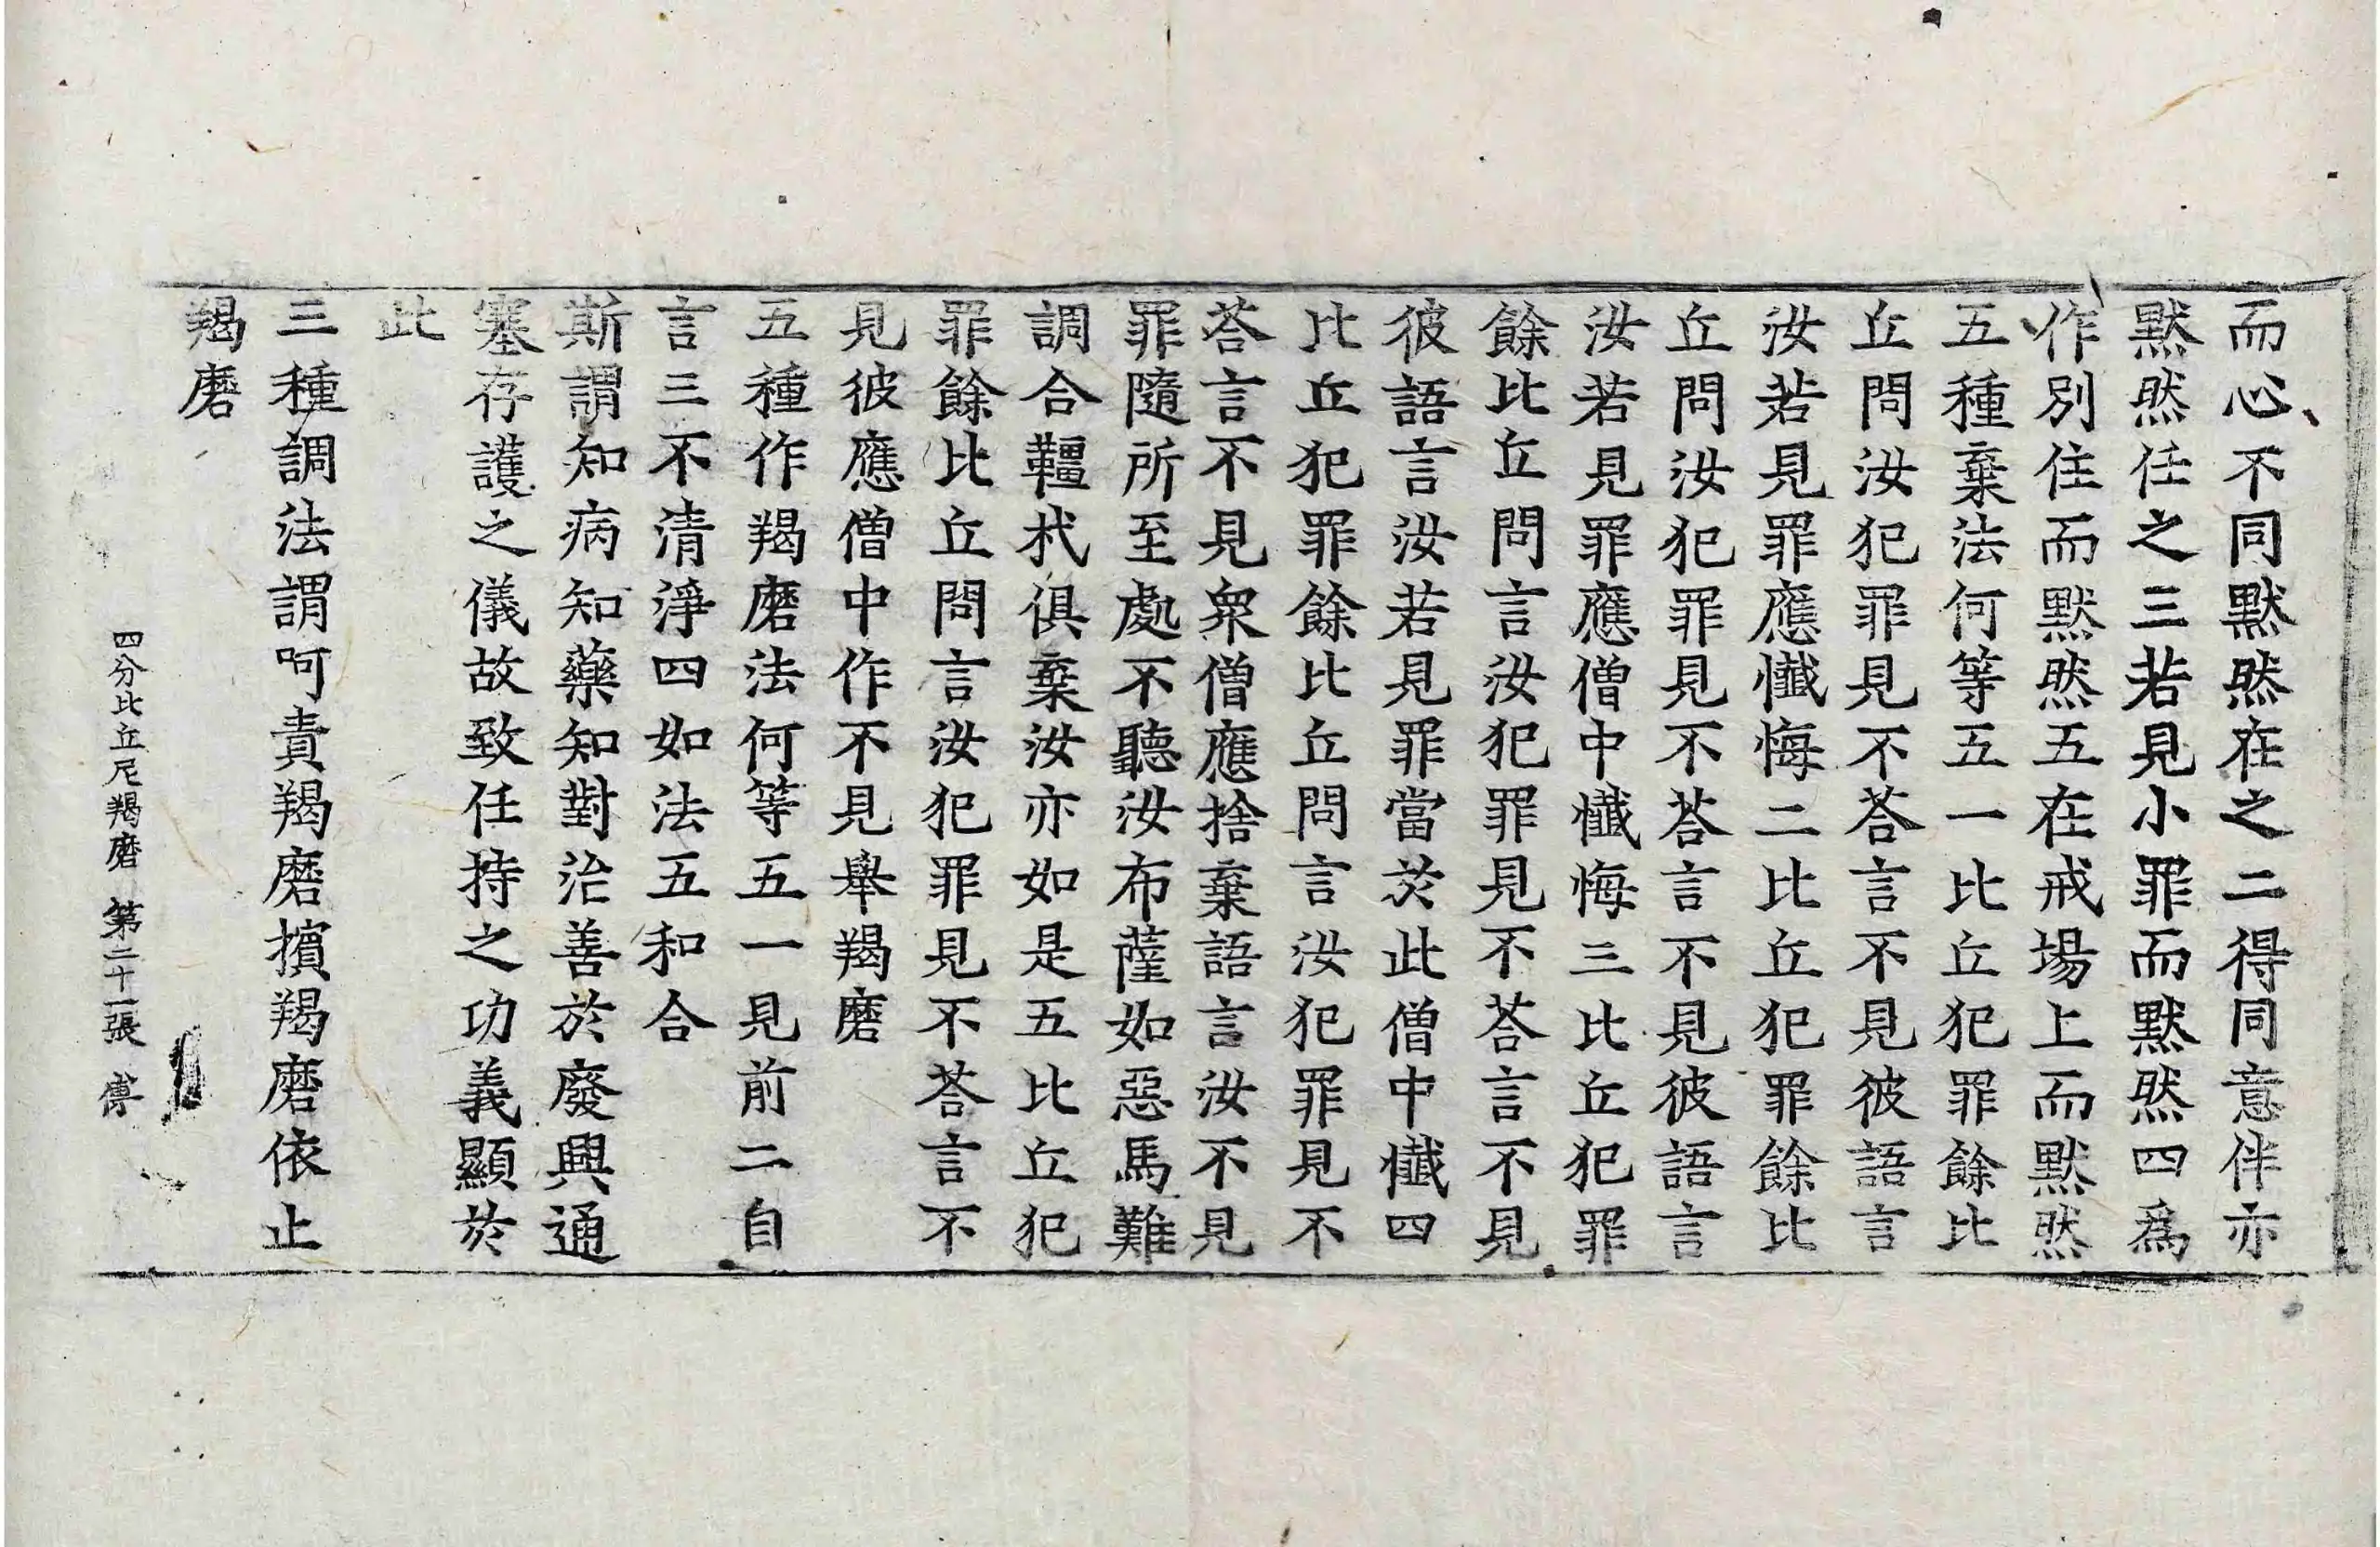 而心不同默然在之二得同意伴亦
默然任之三若見小罪而默然四爲
作別住而默然五在戒場上而默然
五種棄法何等五一比丘犯罪餘比
丘問汝犯罪見不荅言不見彼語言
汝若見罪應懺悔二比丘犯罪餘比
丘問汝犯罪見不荅言不見彼語言
汝若見罪應僧中懺悔三比丘犯罪
餘比丘問言汝犯罪見不荅言不見
彼語言汝若見罪當於此僧中懺四
比丘犯罪餘比丘問言汝犯罪見不
荅言不見衆僧應捨棄語言汝不見
罪隨所至處不聽汝布薩如惡馬難
調合韁杙俱棄汝亦如是五比丘犯
罪餘比丘問言汝犯罪見不荅言不
見彼應僧中作不見舉羯磨
五種作羯磨法何等五一見前二自
言三不清淨四如法五和合
斯謂知病知藥知對治善於廢興通
塞存護之儀故致任持之功義顯於
此
三種調法謂呵責羯磨擯羯磨依止
羯磨
四分比丘尼羯磨 第二十一張 傳